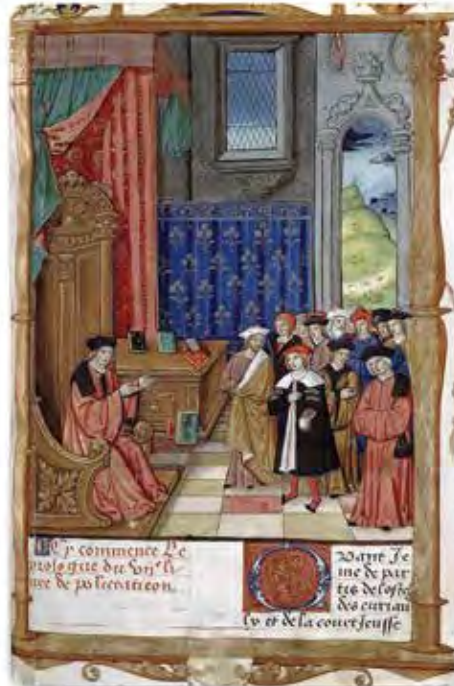 Cy commence le
prologue du viie li
vre de policraticon.
Quant je
me de par
tis de loste
des curiau
ly et de la court jeusse